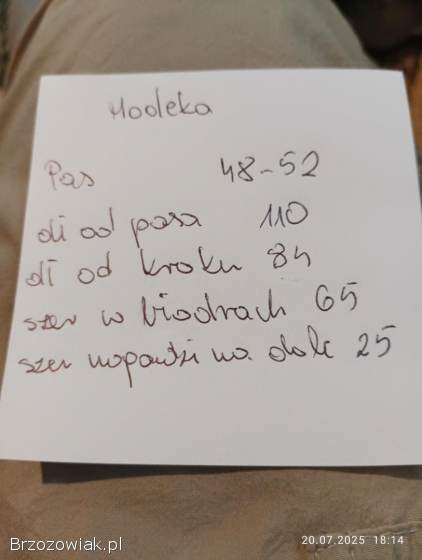 Modeka
Pas 48-52
dł od pasa 110
dł od kroku 84
szer w biodrach 65
szer nogawki na dole 25
20.07.2025 18:14
Brzozowiak.pl